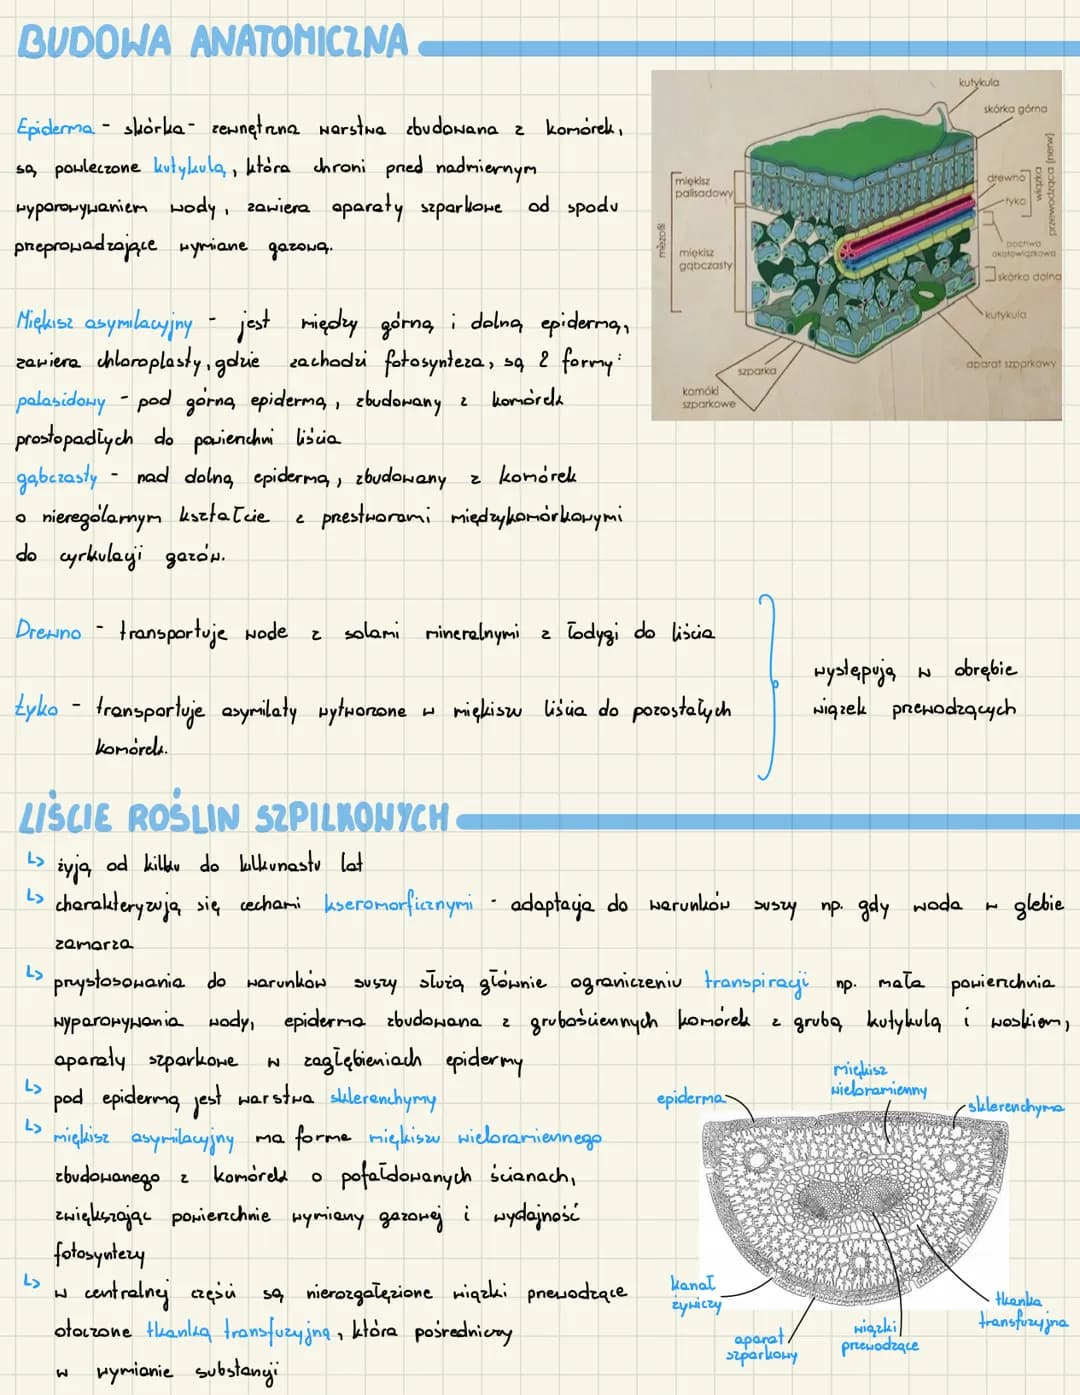 BUDOWA ANATOMICZNA
Epiderma - skórka - zewnętrzna warstwa zbudowana z komórek,
są powleczone kutykulą, która chroni przed nadmiernym
wyparowywaniem wody, zawiera aparaty szparkowe od spodu
przeprowadzające wymiane gazową.
kutykula
skórka górna
drewno
łyko
wiązka
przewodząca (nerw)
pochwa
okołowiązkowa
skórka dolna
kutykula
aparat szparkowy
miękisz
palisadowy
mezofil
miękisz
gąbczasty
szparka
komóki
szparkowe
Miękisz asymilacyjny - jest między górną i dolną epidermą,
zawiera chloroplasty, gdzie zachodzi fotosynteza, są 2 formy:
palasidowy - pod górną epidermą, zbudowany z komórek
prostopadłych do powierzchni liścia
gąbczasty - nad dolną epidermą, zbudowany z komórek
o nierególarnym kształcie z przestworami międzykomórkowymi
do cyrkulacji gazów.
Drewno - transportuje wode z solami mineralnymi z łodygi do liścia
Łyko - transportuje asymilaty wytworzone w miękiszu liścia do pozostałych
komórek.
występują w obrębie
wiązek przewodzących
LIŚCIE ROŚLIN SZPILKOWYCH
↳ żyją od kilku do kilkunastu lat
↳ charakteryzują się cechami kseromorficznymi - adaptacja do warunków suszy np. gdy woda w glebie
zamarza
↳ przystosowania do warunków suszy służą głównie ograniczeniu transpiracji np. mała powierzchnia
wyparowywania wody, epiderma zbudowana z grubościennych komórek z grubą kutykulą i woskiem,
aparaty szparkowe w zagłębieniach epidermy
↳ pod epidermą jest warstwa sklerenchymy
↳ miękisz asymilacyjny ma forme miękiszu wieloramiennego
zbudowanego z komórek o pofałdowanych ścianach,
zwiększając powierzchnie wymiany gazowej i wydajność
fotosyntezy
↳ w centralnej części są nierozgałęzione wiązki przewodzące
otoczone tkanką transfuzyjną, która pośredniczy
w wymianie substancji
epiderma
miękisz
wieloramienny
sklerenchyma
kanał
żywiczy
aparat
szparkowy
wiązki
przewodzące
tkanka
transfuzyjna